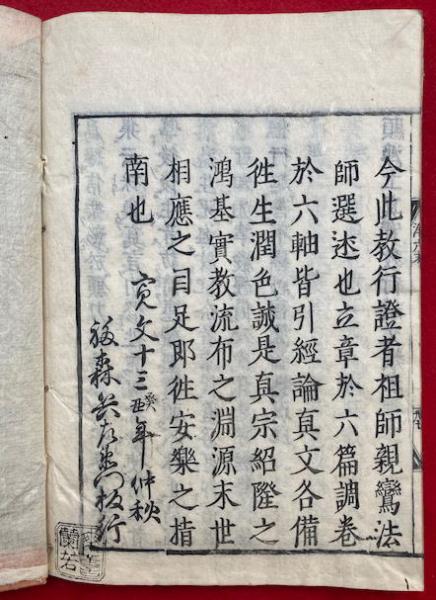 今此教行證者祖師親鸞法
師選述也立章於六篇調卷
於六軸皆引經論真文各備
徃生潤色誠是真宗紹隆之
鴻基實教流布之淵源末世
相應之目足即徃安樂之指
南也
寛文十三癸丑年仲秋
森兵左衛門板行
蘭若